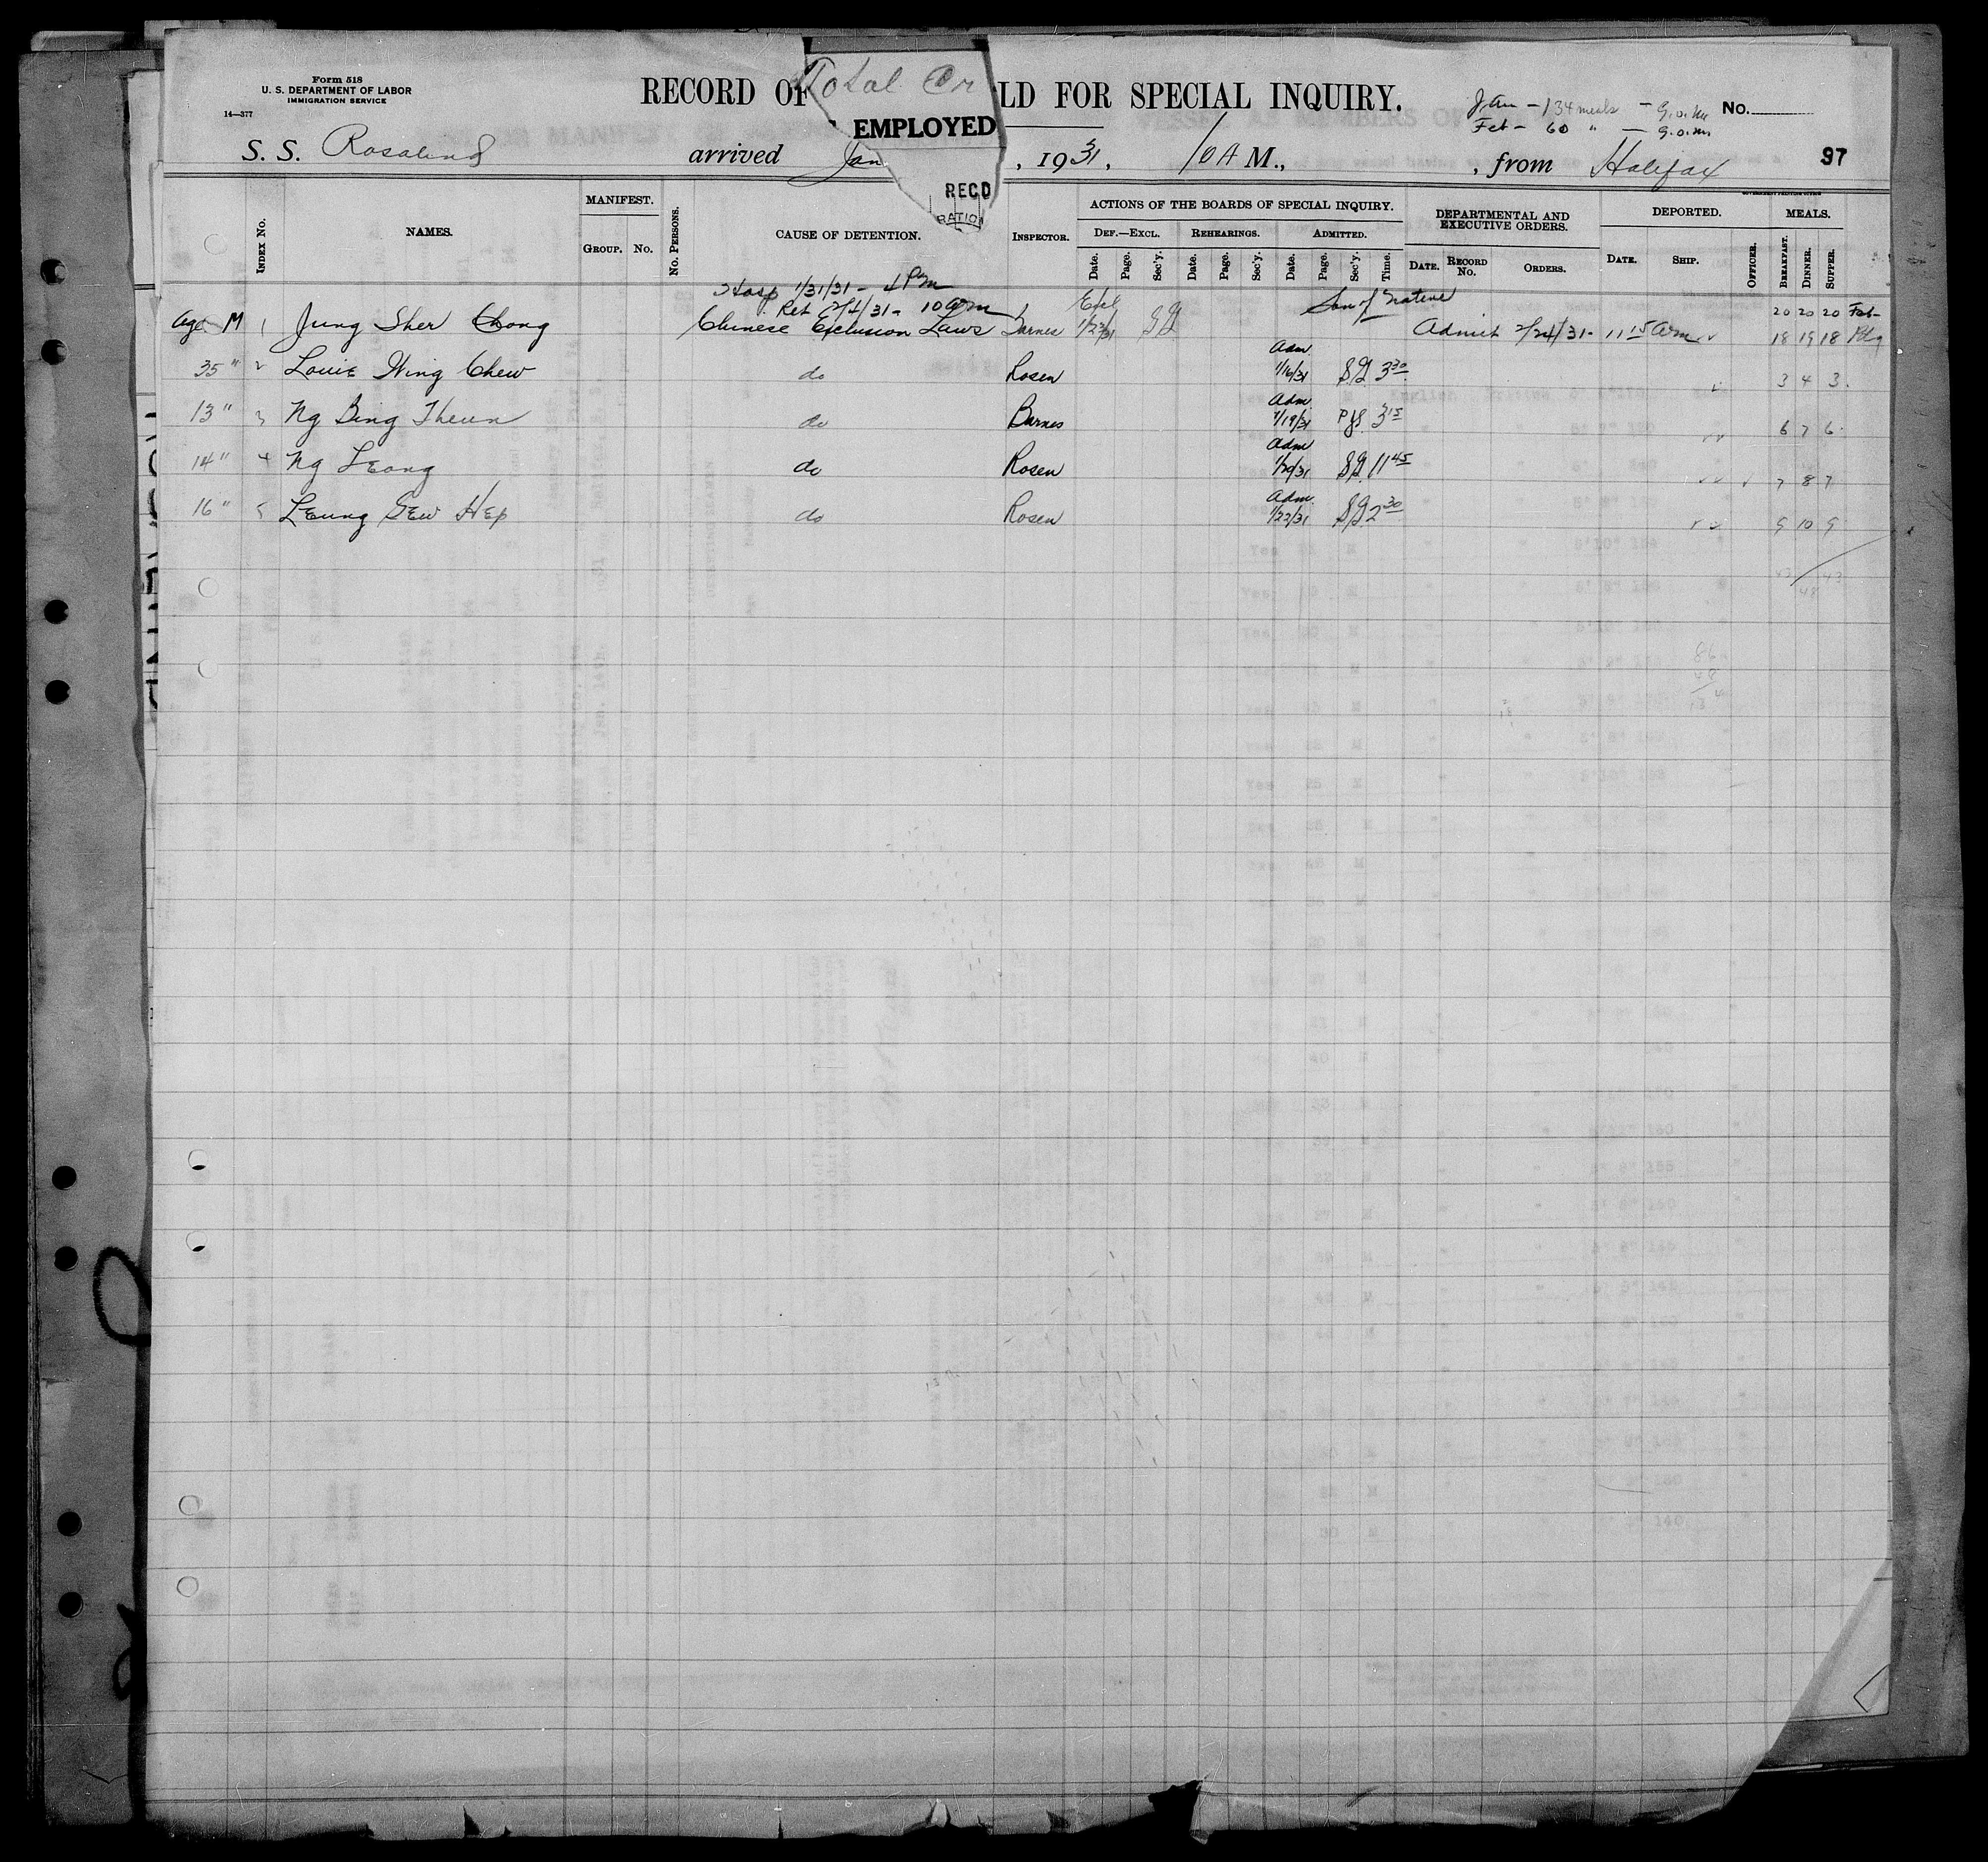 Form 518
U. S. DEPARTMENT OF LABOR
IMMIGRATION SERVICE
14—377
RECORD OF LD FOR SPECIAL INQUIRY.
Total Cr
EMPLOYED
RECD
RATION
Jan — 134 meals — G.O.M.
Feb — 60 " — G.O.M.
No.
97
S. S. Rosalind arrived Jan , 1931, 10 A M., , from Halifax
GOVERNMENT PRINTING OFFICE
INDEX No. NAMES. MANIFEST. GROUP. No. No. PERSONS. CAUSE OF DETENTION. INSPECTOR. ACTIONS OF THE BOARDS OF SPECIAL INQUIRY. DEPARTMENTAL AND EXECUTIVE ORDERS. DEPORTED. MEALS.
DEF.—EXCL. REHEARINGS. ADMITTED.
Date. Page. Sec'y. Date. Page. Sec'y. Date. Page. Sec'y. Time. DATE. RECORD No. ORDERS. DATE. SHIP. OFFICER. BREAKFAST. DINNER. SUPPER.
Hosp 1/31/31 - 4 Pm
Ret 2/4/31 - 10 am Excl Son of Native 20 20 20 Feb
Age M 1 Jung Sher Chong Chinese Exclusion Laws Barnes 1/23/31 SG Admit 2/24/31 - 11 15 am 18 19 18
Adm
35 " 2 Louie Wing Chew do Rosen 1/16/31 SG 3 30 3 4 3
Adm
13 " 3 Ng Bing Theun do Barnes 1/19/31 3 15 6 7 6
Adm
14 " 4 Ng Leong do Rosen 1/20/31 SG 11 45 7 8 7
Adm
16 " 5 Leung Sew Hep do Rosen 1/22/31 SG 2 30 9 10 9
43 48 43
86
48
134